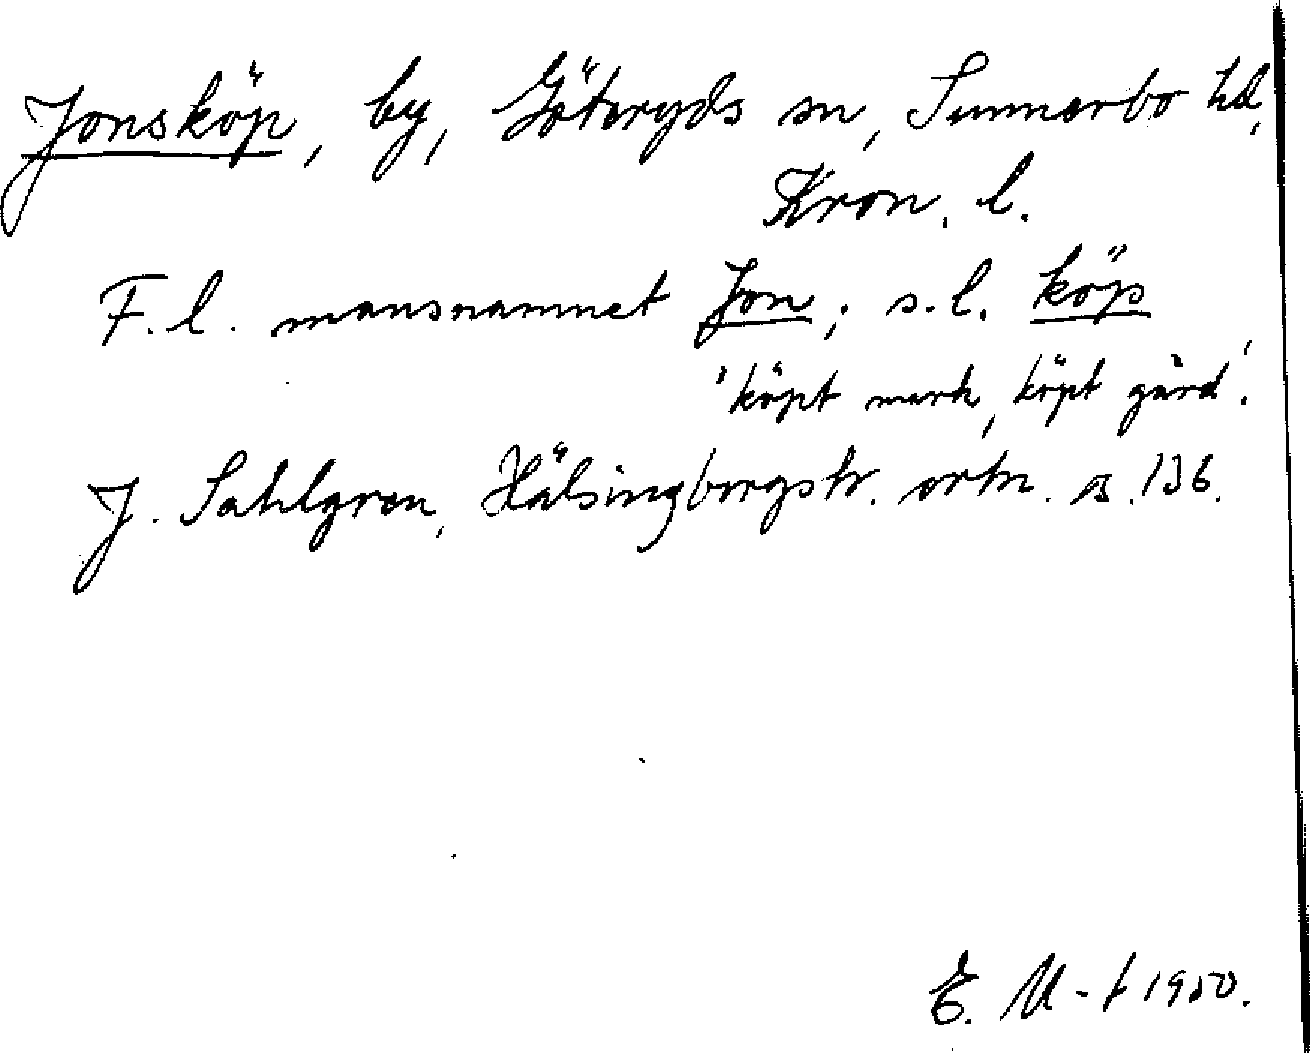 Jonsköp, by, Göteryds sn, Sunnerbo hd,
Kron. l.
F.l. mansnamnet Jon; s.l. köp
'köpt mark, köpt gård'.
J. Sahlgren, Hälsingborgstr. ortn. s. 136.
E. M-t 1950.